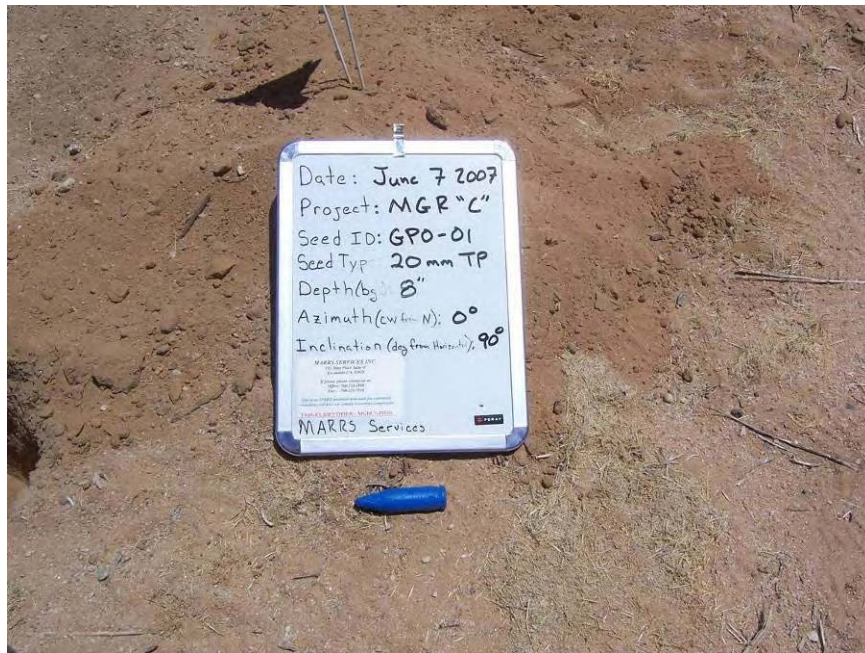 Date: June 7 2007
Project: MGR "C"
Seed ID: GPO-01
Seed Typ: 20mm TP
Depth(bg): 8"
Azimuth (CW from N): 0°
Inclination (deg from Horizontal): 90°
MARRS SERVICES INC.
MARRS Services